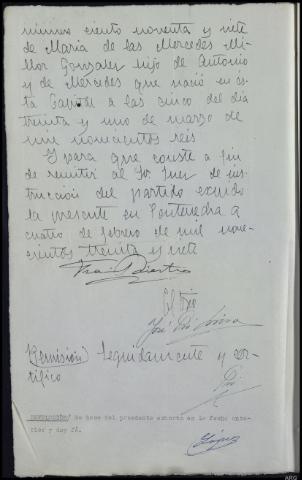 número ciento noventa y siete
de Maria de las Mercedes Mi-
llor Gonzalez hijo de Antonio
y de Mercedes que nació en es-
ta Capital a las cinco del dia
treinta y uno de marzo de
mil novecientos seis
Y para que conste a fin
de remitir al Sr Juez de ins-
trucción del partido expido
la presente en Pontevedra a
cuatro de febrero de mil nove-
cientos treinta y siete
El Srio
José
Remisión) Seguidamente y cer-
tifico
DEVOLUCION/ Se hace del precedente exhorto en la fecha ante-
rior y doy fé.
López
ARG